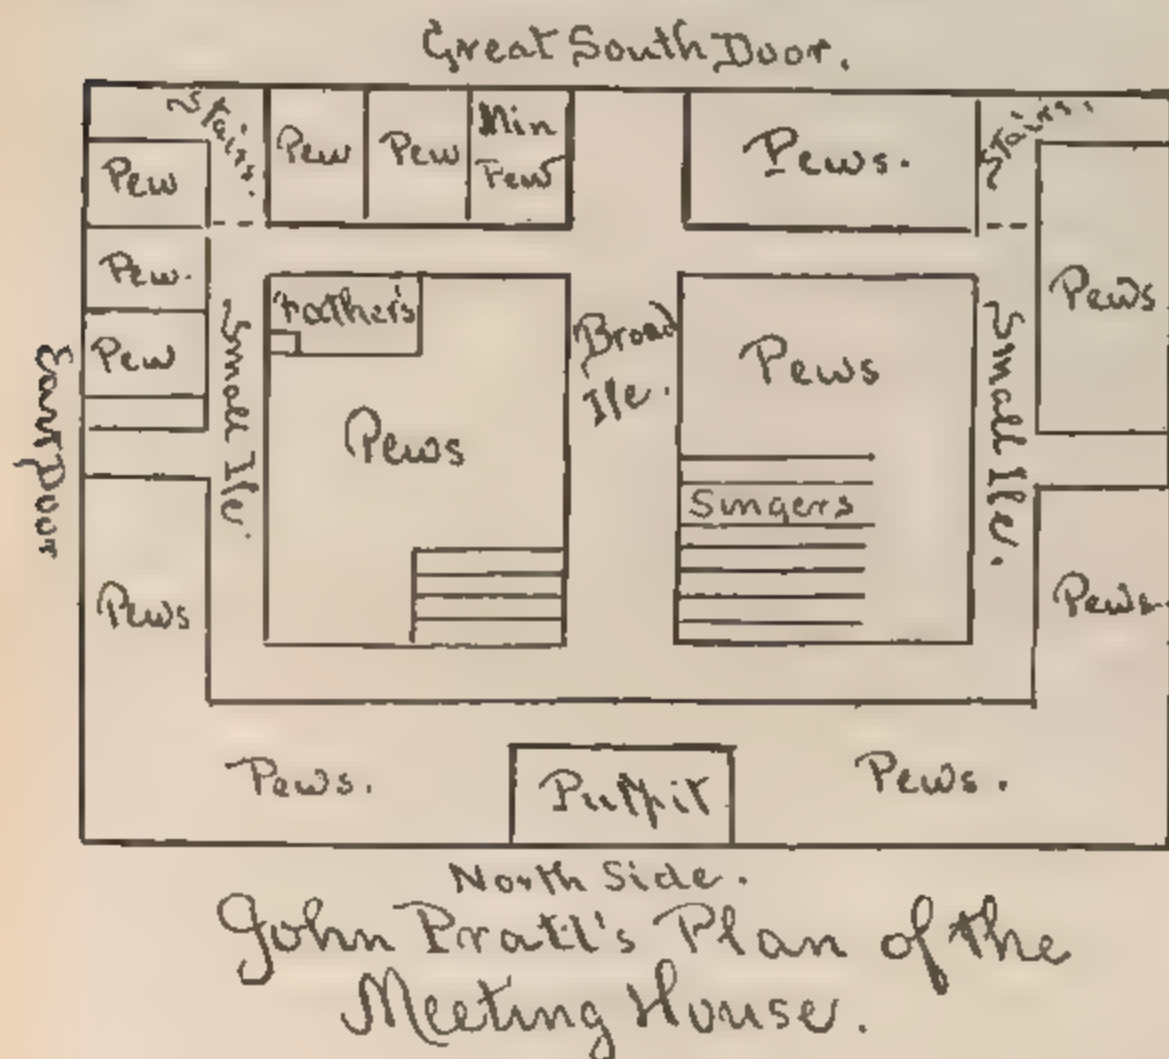 Great South Door.
Stairs.
Pew
Pew
Min
Pew
Pews.
Stairs.
Pew
Pew.
Pew
East Door
Small Ile.
Father's
Pews
Broad
Ile.
Pews
Singers
Small Ile.
Pews
Pews
Pews.
Pews.
Pulpit
Pews.
North Side.
John Pratt's Plan of the
Meeting House.